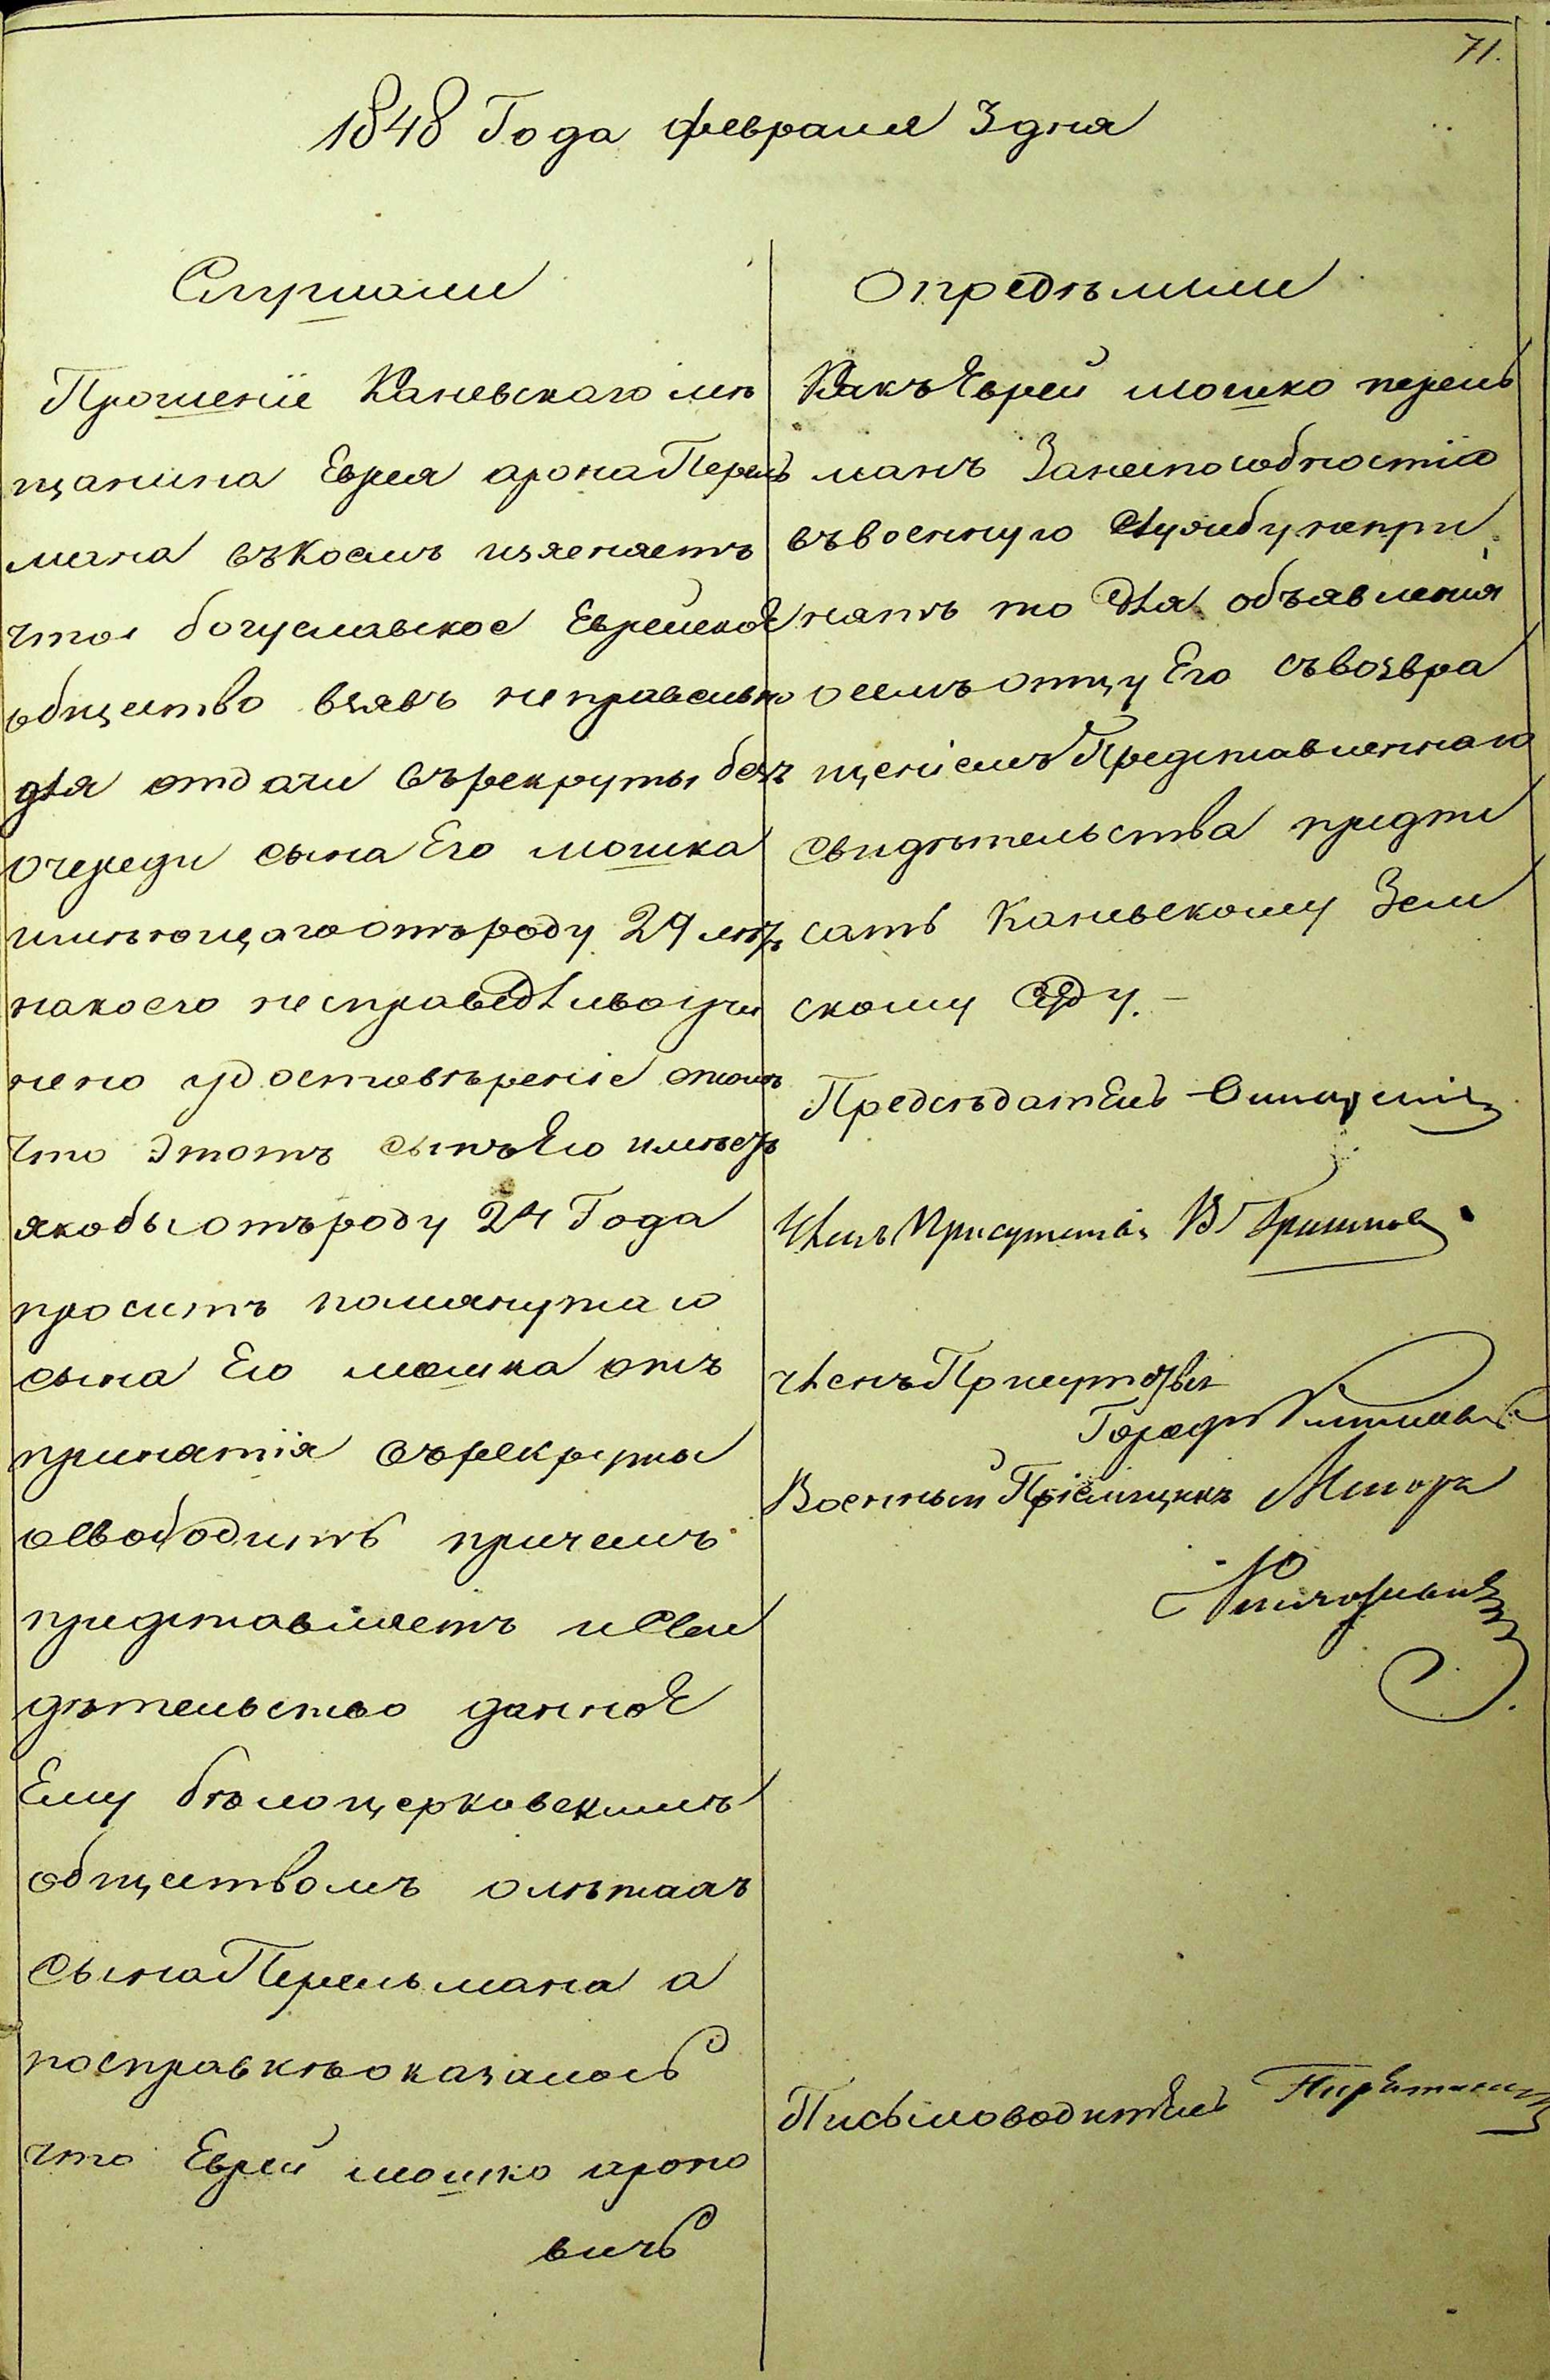 71.
1848 Года февраля 3 дня
Слушали
Прошеніе Каневскаго мѣ
щанина Еврея арона Перель
мана въ коемъ изясняетъ
что богуславское Еврейское
общество взявъ неправильно
для отдачи въ рекруты безъ
очереди сына Его мошка
имѣющаго отъ роду 29 лѣтъ
на коего несправедливо учи
нено удостовѣреніе о томъ
что этотъ сынъ Его имѣетъ
якобы отъ роду 24 Года
проситъ помянутаго
сына Его мошка отъ
принятія въ рекруты
освободить причемъ
представляетъ и Сви
дѣтельство данное
Ему бѣлоцерковскимъ
обществомъ о лѣтахъ
Сына Перельмана а
по справкѣ оказалось
что Еврей мошко ароно
вичъ
Опредѣлили
Какъ Еврей мошко перель
манъ За неспособностію
въ военную Службу непри
нятъ то Для объявленія
о семъ отцу Его съ возвра
щеніемъ Представленнаго
Свидѣтельства предпи
сать Каневскому Зем
скому Суду. –
Предсѣдатель
Членъ Присутствія В
Членъ Присутствія
Военный Пріемщикъ Маіоръ
Письмоводитель